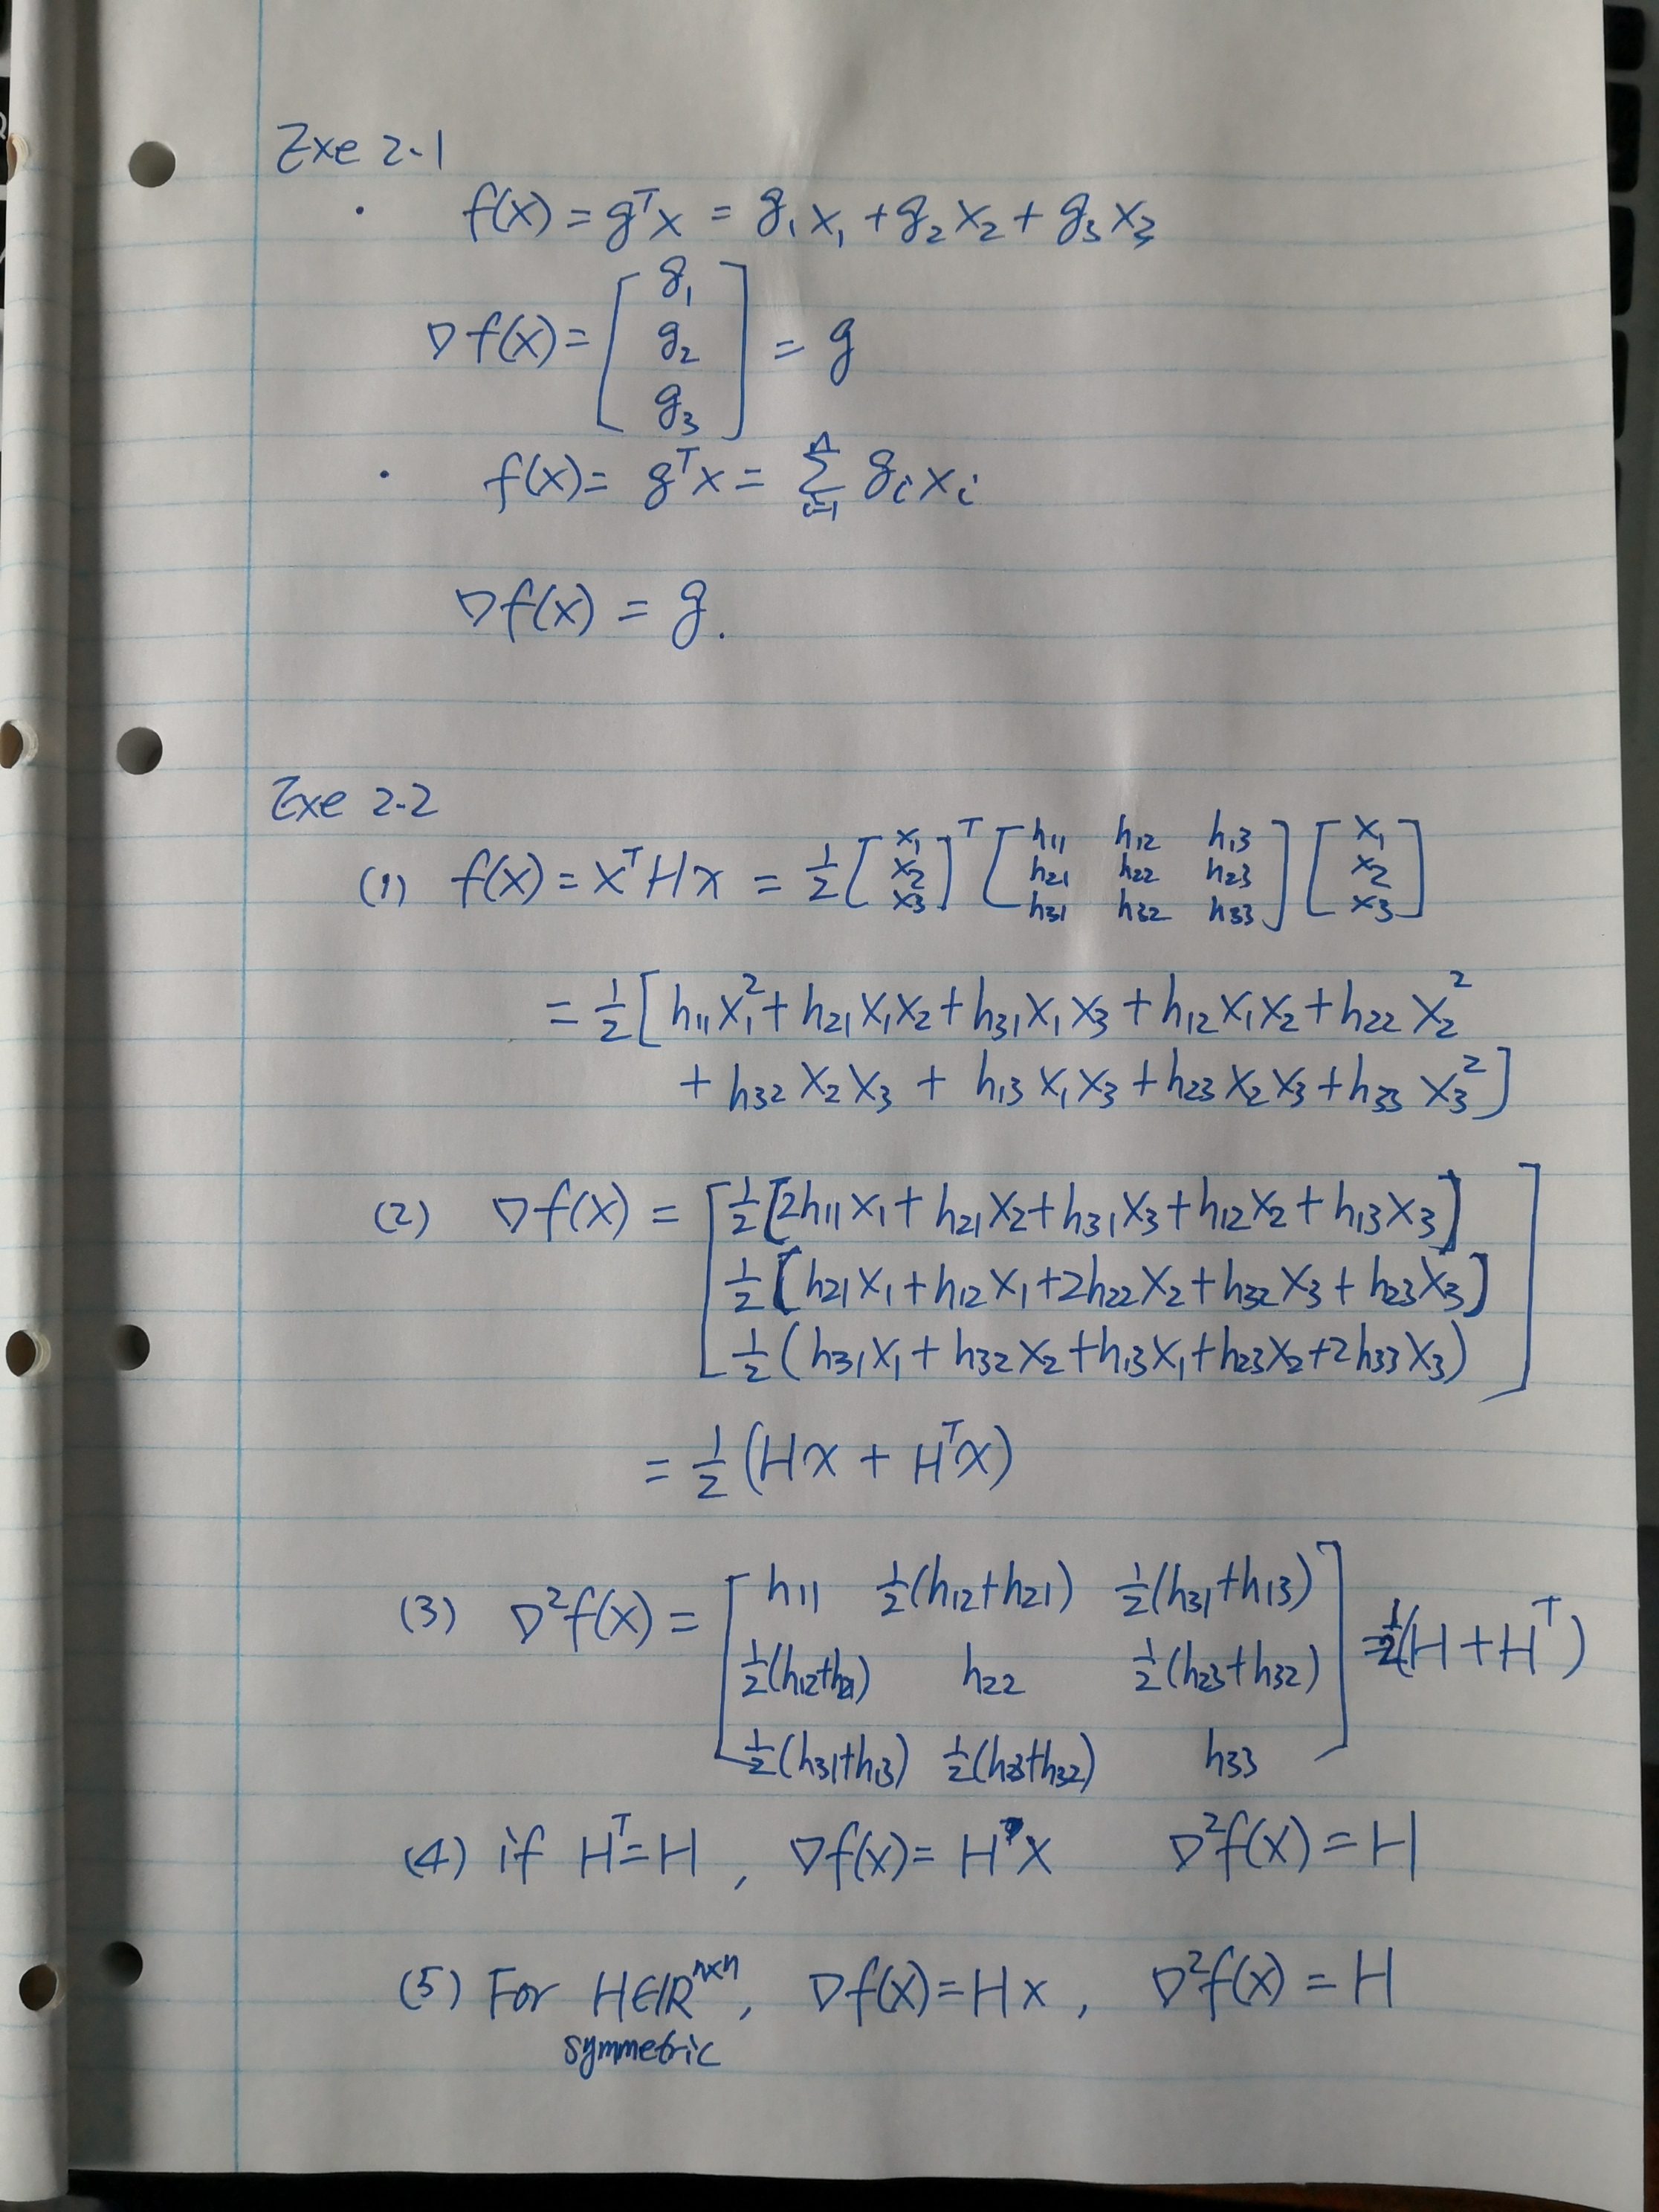 Exe 2-1
· f(x) = gᵀx = g₁x₁ + g₂x₂ + g₃x₃
∇f(x) = [g₁ g₂ g₃] = g
· f(x) = gᵀx = Σⁿᵢ₌₁ gᵢxᵢ
∇f(x) = g.
Exe 2-2
(1) f(x) = xᵀHx = ½ [x₁ x₂ x₃]ᵀ [h₁₁ h₁₂ h₁₃ h₂₁ h₂₂ h₂₃ h₃₁ h₃₂ h₃₃] [x₁ x₂ x₃]
= ½ [h₁₁x₁² + h₂₁x₁x₂ + h₃₁x₁x₃ + h₁₂x₁x₂ + h₂₂x₂²
+ h₃₂x₂x₃ + h₁₃x₁x₃ + h₂₃x₂x₃ + h₃₃x₃²]
(2) ∇f(x) = [½[2h₁₁x₁ + h₂₁x₂ + h₃₁x₃ + h₁₂x₂ + h₁₃x₃]
½[h₂₁x₁ + h₁₂x₁ + 2h₂₂x₂ + h₃₂x₃ + h₂₃x₃]
½(h₃₁x₁ + h₃₂x₂ + h₁₃x₁ + h₂₃x₂ + 2h₃₃x₃)]
= ½(Hx + Hᵀx)
(3) ∇²f(x) = [h₁₁ ½(h₁₂+h₂₁) ½(h₃₁+h₁₃)
½(h₁₂+h₂₁) h₂₂ ½(h₂₃+h₃₂)
½(h₃₁+h₁₃) ½(h₂₃+h₃₂) h₃₃] = ½(H+Hᵀ)
(4) if Hᵀ=H, ∇f(x) = Hx ∇²f(x) = H
(5) For H∈ℝⁿˣⁿ, ∇f(x) = Hx, ∇²f(x) = H
symmetric